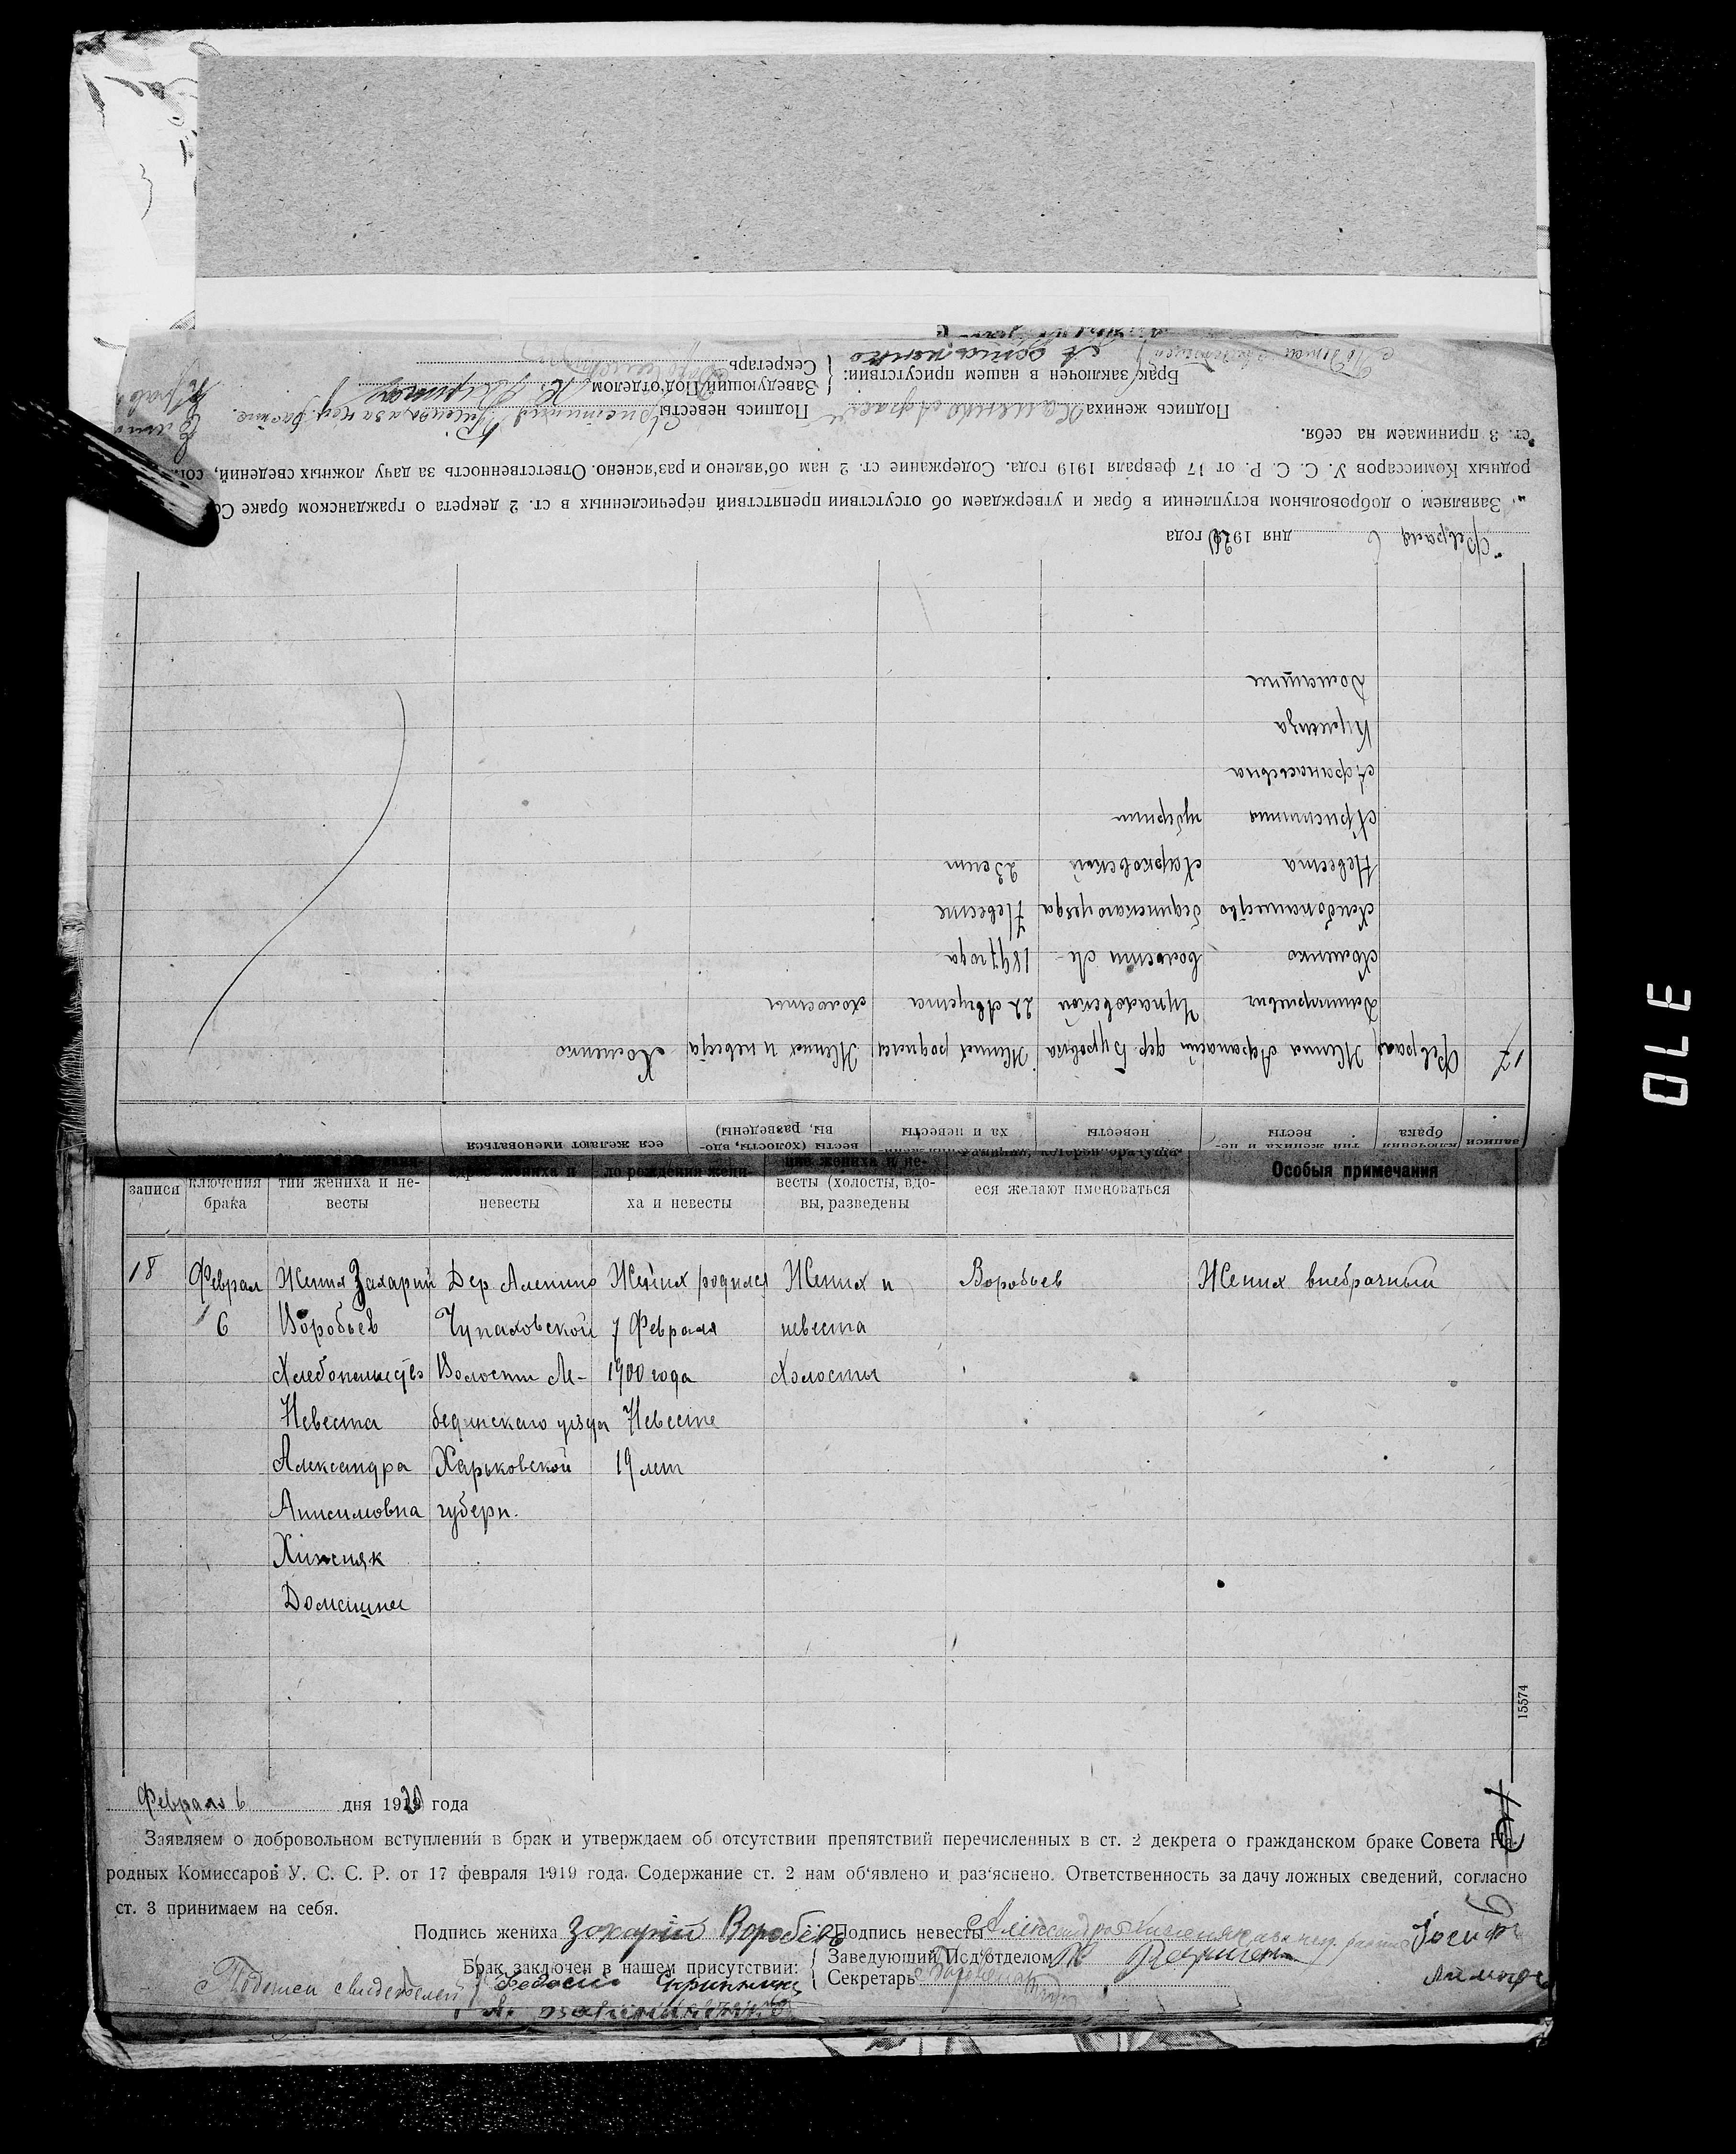 записи
ключения брака
тии жениха и невесты
адрес жениха и невесты
ло рождения жениха и невесты
ние жениха и невесты (холосты, вдовы, разведены
еся желают именоваться
Особыя примечания
18
Феврал
6
Жених Захарий
Воробьев
Хлебопашество
Невеста
Александра
Анисимовна
Хижняк
Домашние
Дер. Аленино
Чупаховской
Волости Ле-
бединскаго уезда
Харьковской
губерн.
Жених родился
7 Февраля
1900 года
Невесте
19 лет
Жених и
невеста
холосты
Воробьев
Жених внебрачный
15574
Февраля 6 дня 1920 года
Заявляем о добровольном вступлении в брак и утверждаем об отсутствии препятствий перечисленных в ст. 2 декрета о гражданском браке Совета На-
родных Комиссаров У. С. С. Р. от 17 февраля 1919 года. Содержание ст. 2 нам об‘явлено и раз‘яснено. Ответственность за дачу ложных сведений, согласно
ст. 3 принимаем на себя.
Подпись жениха Захарий Воробьев Подпись невесты Александра Хижняк
Брак заключен в нашем присутствии: Заведующий Под‘отделом
Подписи свидетелей Секретарь
записи
ключения брака
тии жениха и невесты
невесты
ха и невесты
весты (холосты, вдовы, разведены)
еся желают именоваться
17
Февраля
Жених Афанасий
Дмитриевич
Хоменко
Хлебопашество
Невеста
Христина
Афанасьевна
Домашние
дер. Буровка
Чупаховской
волости Ле-
бединскаго уезда
Харковской
губернии
Жених родился
22 Августа
1897 года
Невесте
23 лет
Жених и невеста
холосты
Хоменко
Февраля 6 дня 1920 года
Заявляем о добровольном вступлении в брак и утверждаем об отсутствии препятствий перечисленных в ст. 2 декрета о гражданском браке Со
родных Комиссаров У. С. С. Р. от 17 февраля 1919 года. Содержание ст. 2 нам об‘явлено и раз‘яснено. Ответственность за дачу ложных сведений, сог
ст. 3 принимаем на себя.
Подпись жениха Подпись невесты
Брак заключен в нашем присутствии: Заведующий Под‘отделом
Секретарь
370